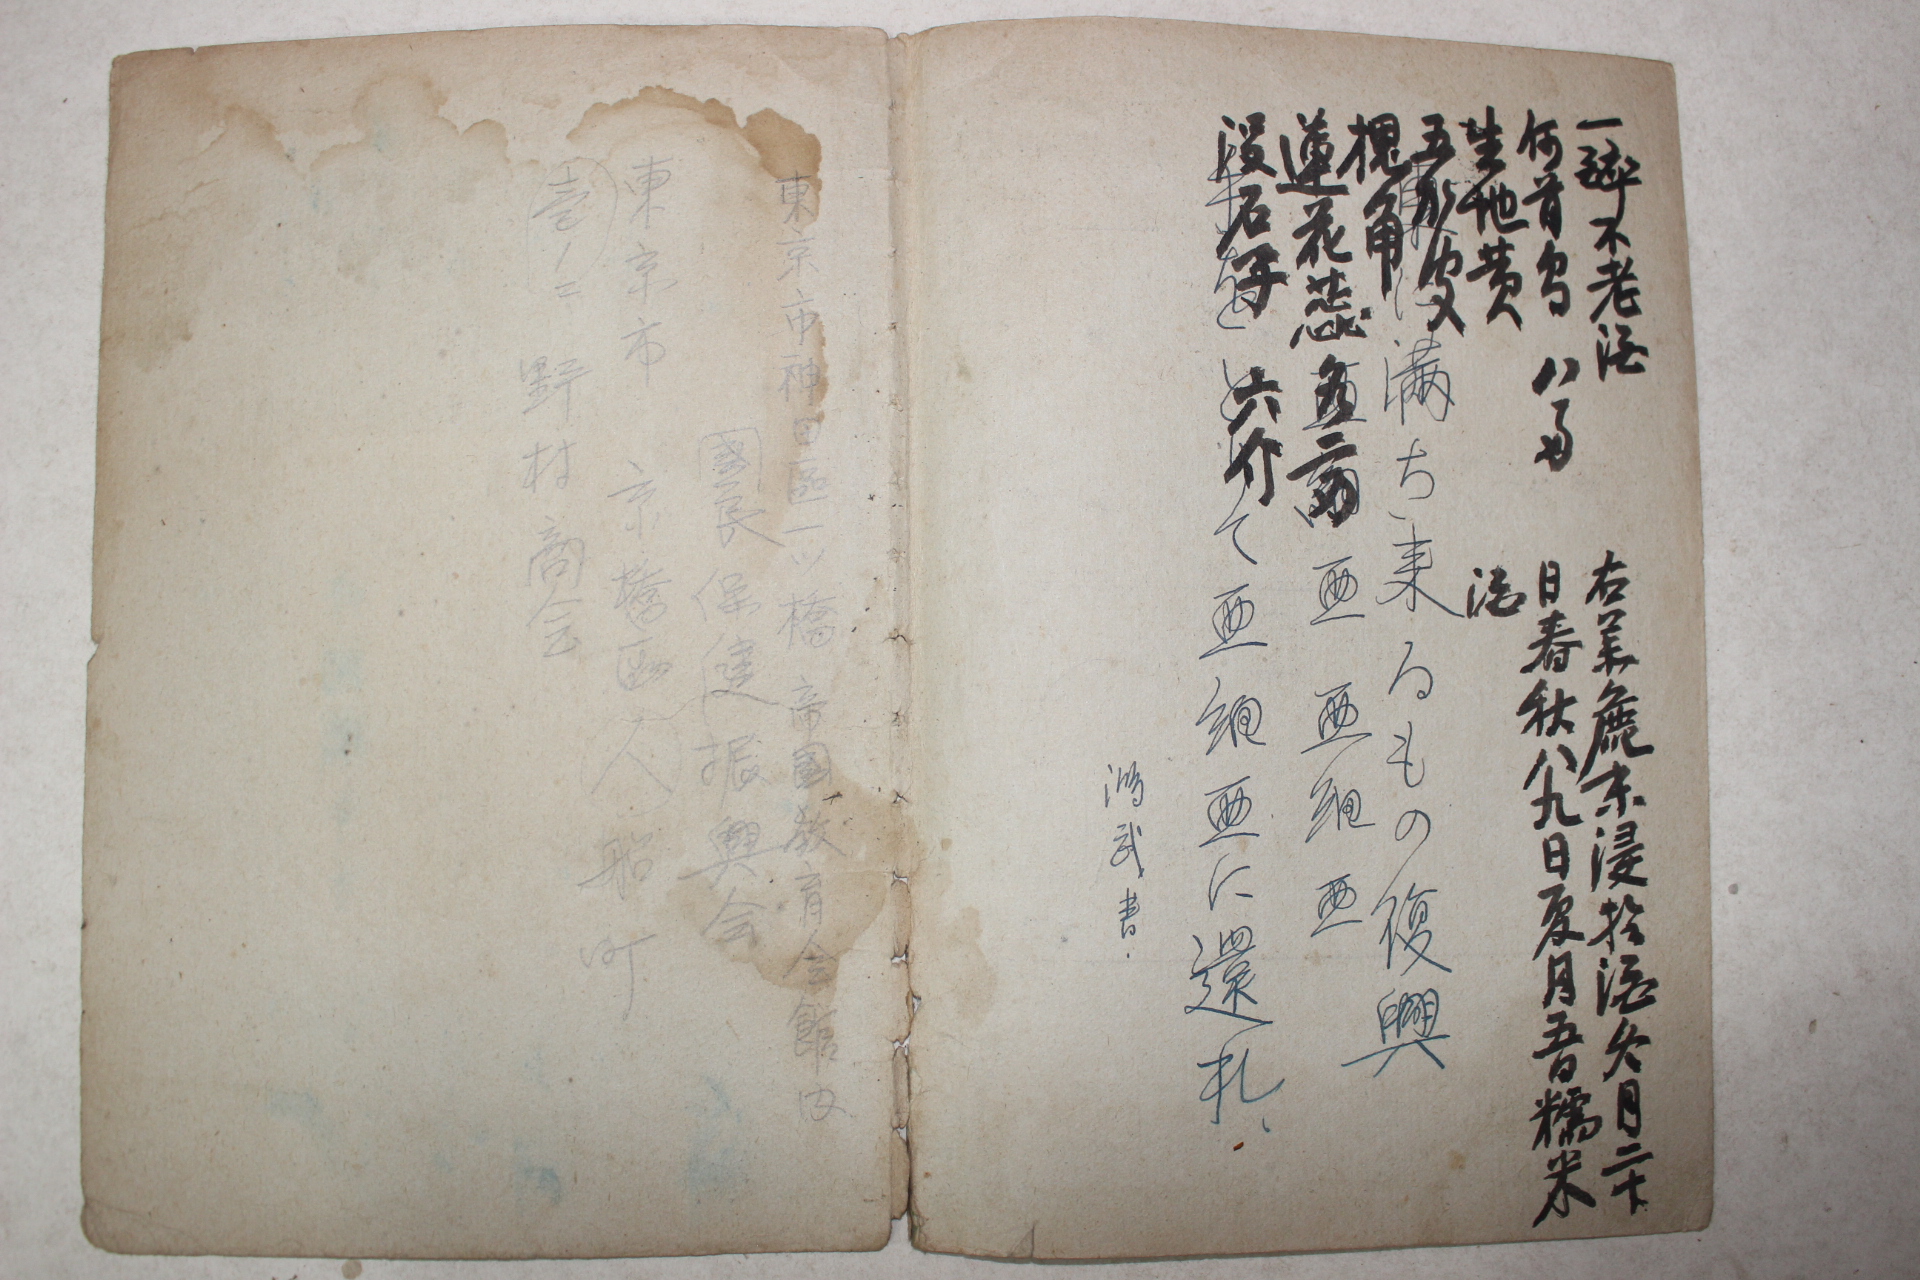 一醉不老酒
何首烏 八两
生地黄
五加皮
槐角
蓮花蕊 各二両
没石子 六介
右羕麁末浸於酒冬月二十
日春秋八九日夏月五日糯米
酒
満ち来るもの復興
亜亜細亜
て亜細亜に還れ、
鴻武書.
東京市神田區一ツ橋 帝國教育会館内
國民保健振興会
東京市 京橋区 八船町
壹ノ二 野村商会